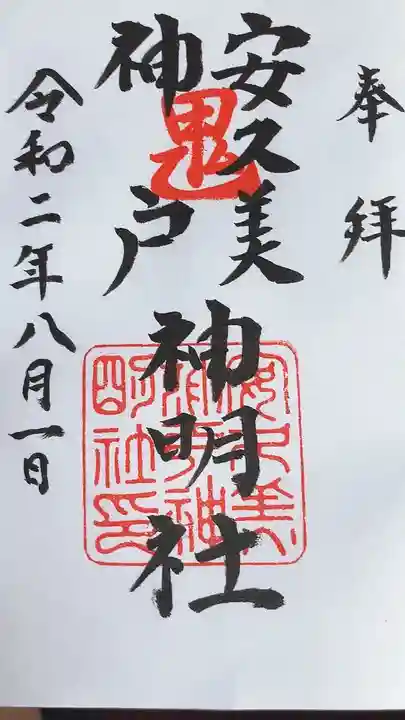 奉拝
安久美
神戸
神明社
鬼
令和二年八月一日